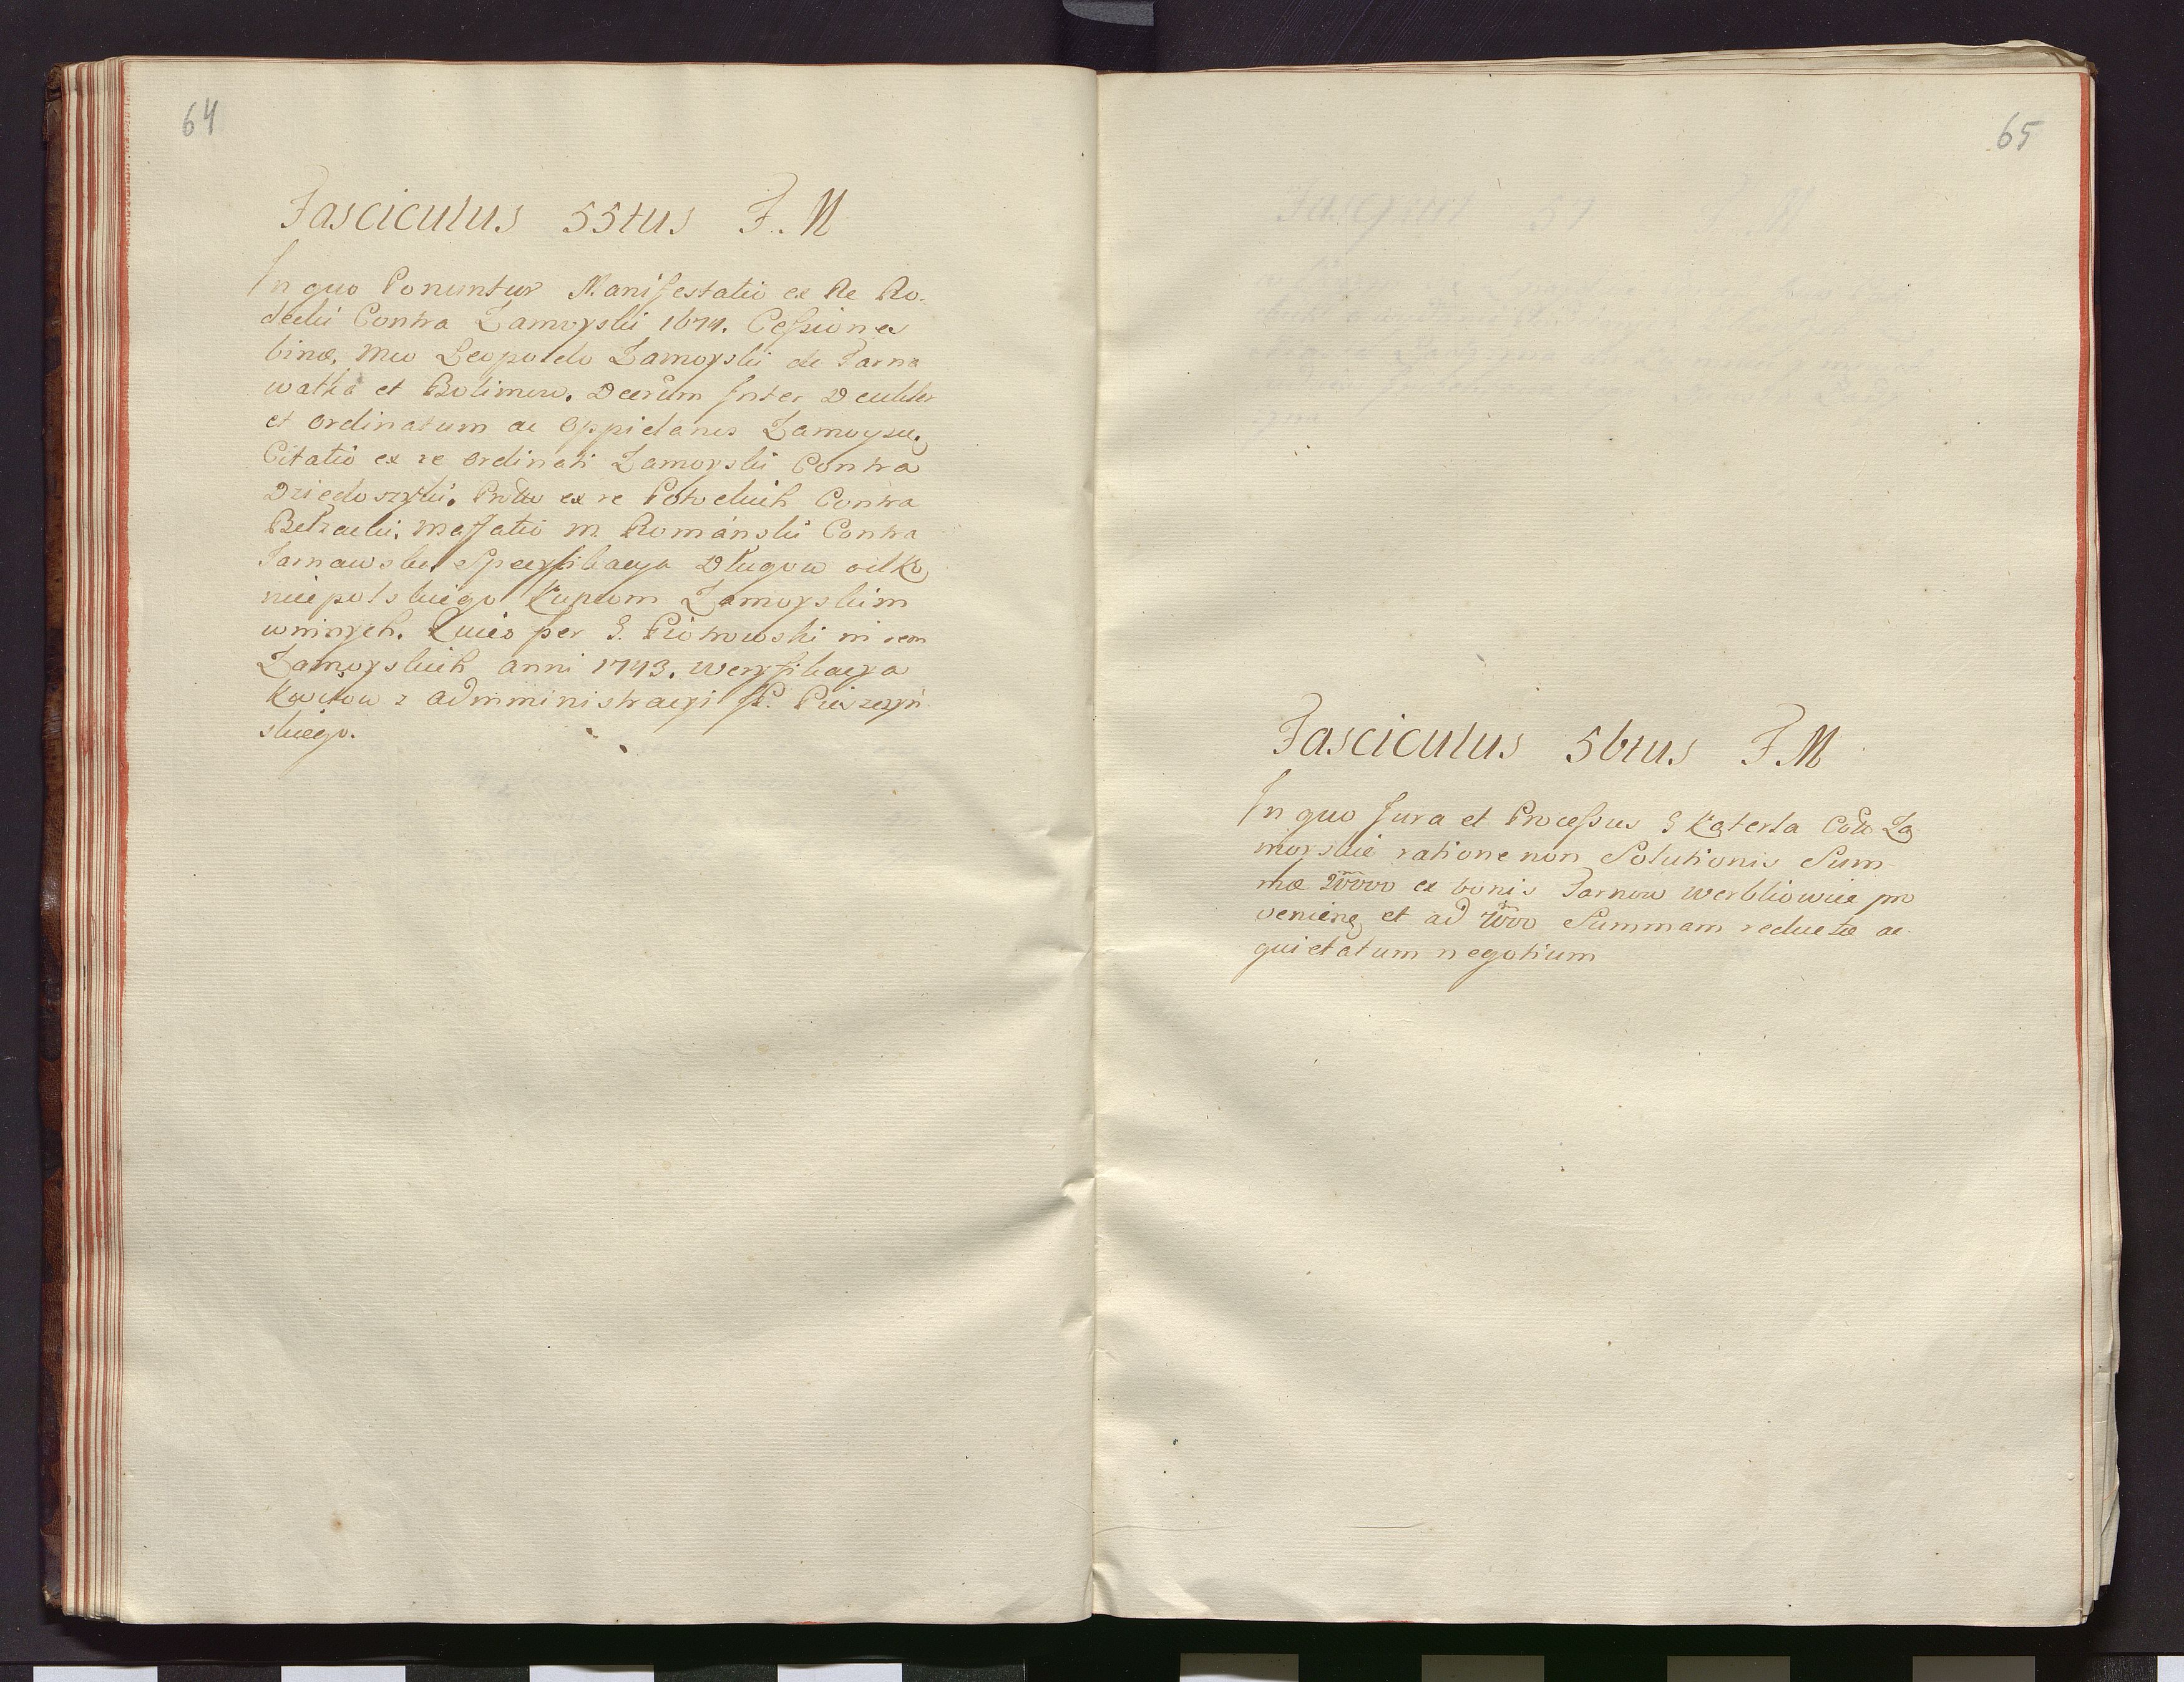 64
Fasciculus 55tus F. M
In quo Ponuntur Manifestatio ex Re Ro-
decki Contra Zamoyski 1674. Cessiones
binæ, Mco Leopoldo Zamoyski de Tarna
watka et Bolimow. Decrum Inter
et Ordinatum ac Oppidanos Zamoysc.
Citatio ex re Ordinati Zamoyski Contra
Dziedoszyki. Prottõ ex re Potockich Contra
Bełzecki. Massatio M. Románski Contra
Tarnawski Specyfikacya Długow od Ko
niecpolskiego Kupcom Zamoyskim
winnych. Quies per G. Piotrowski in rem
Zamoyskich anni 1743. Weryfikacya
Kwitow z Administracyi JP. Pieszczyń
skiego.
65
Fasciculus 56tus F. M
In quo Jura et Processus G Katerla Cotõ Za
moyskie ratione non Solutionis Sum-
mæ 20000 ex bonis Tarnow Werbkowice pro
venienẽ et ad 7000 Summam reductæ ac
quietatum negotium